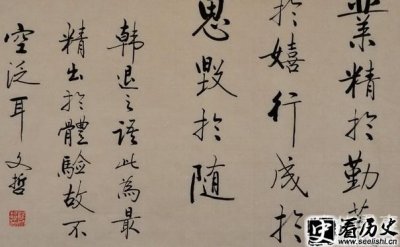 業精於勤荒
於嬉行成於
思毀於隨
韓退之語此為最
精出於體驗故不
空泛耳 文哲
看历史
www.seelishi.cn